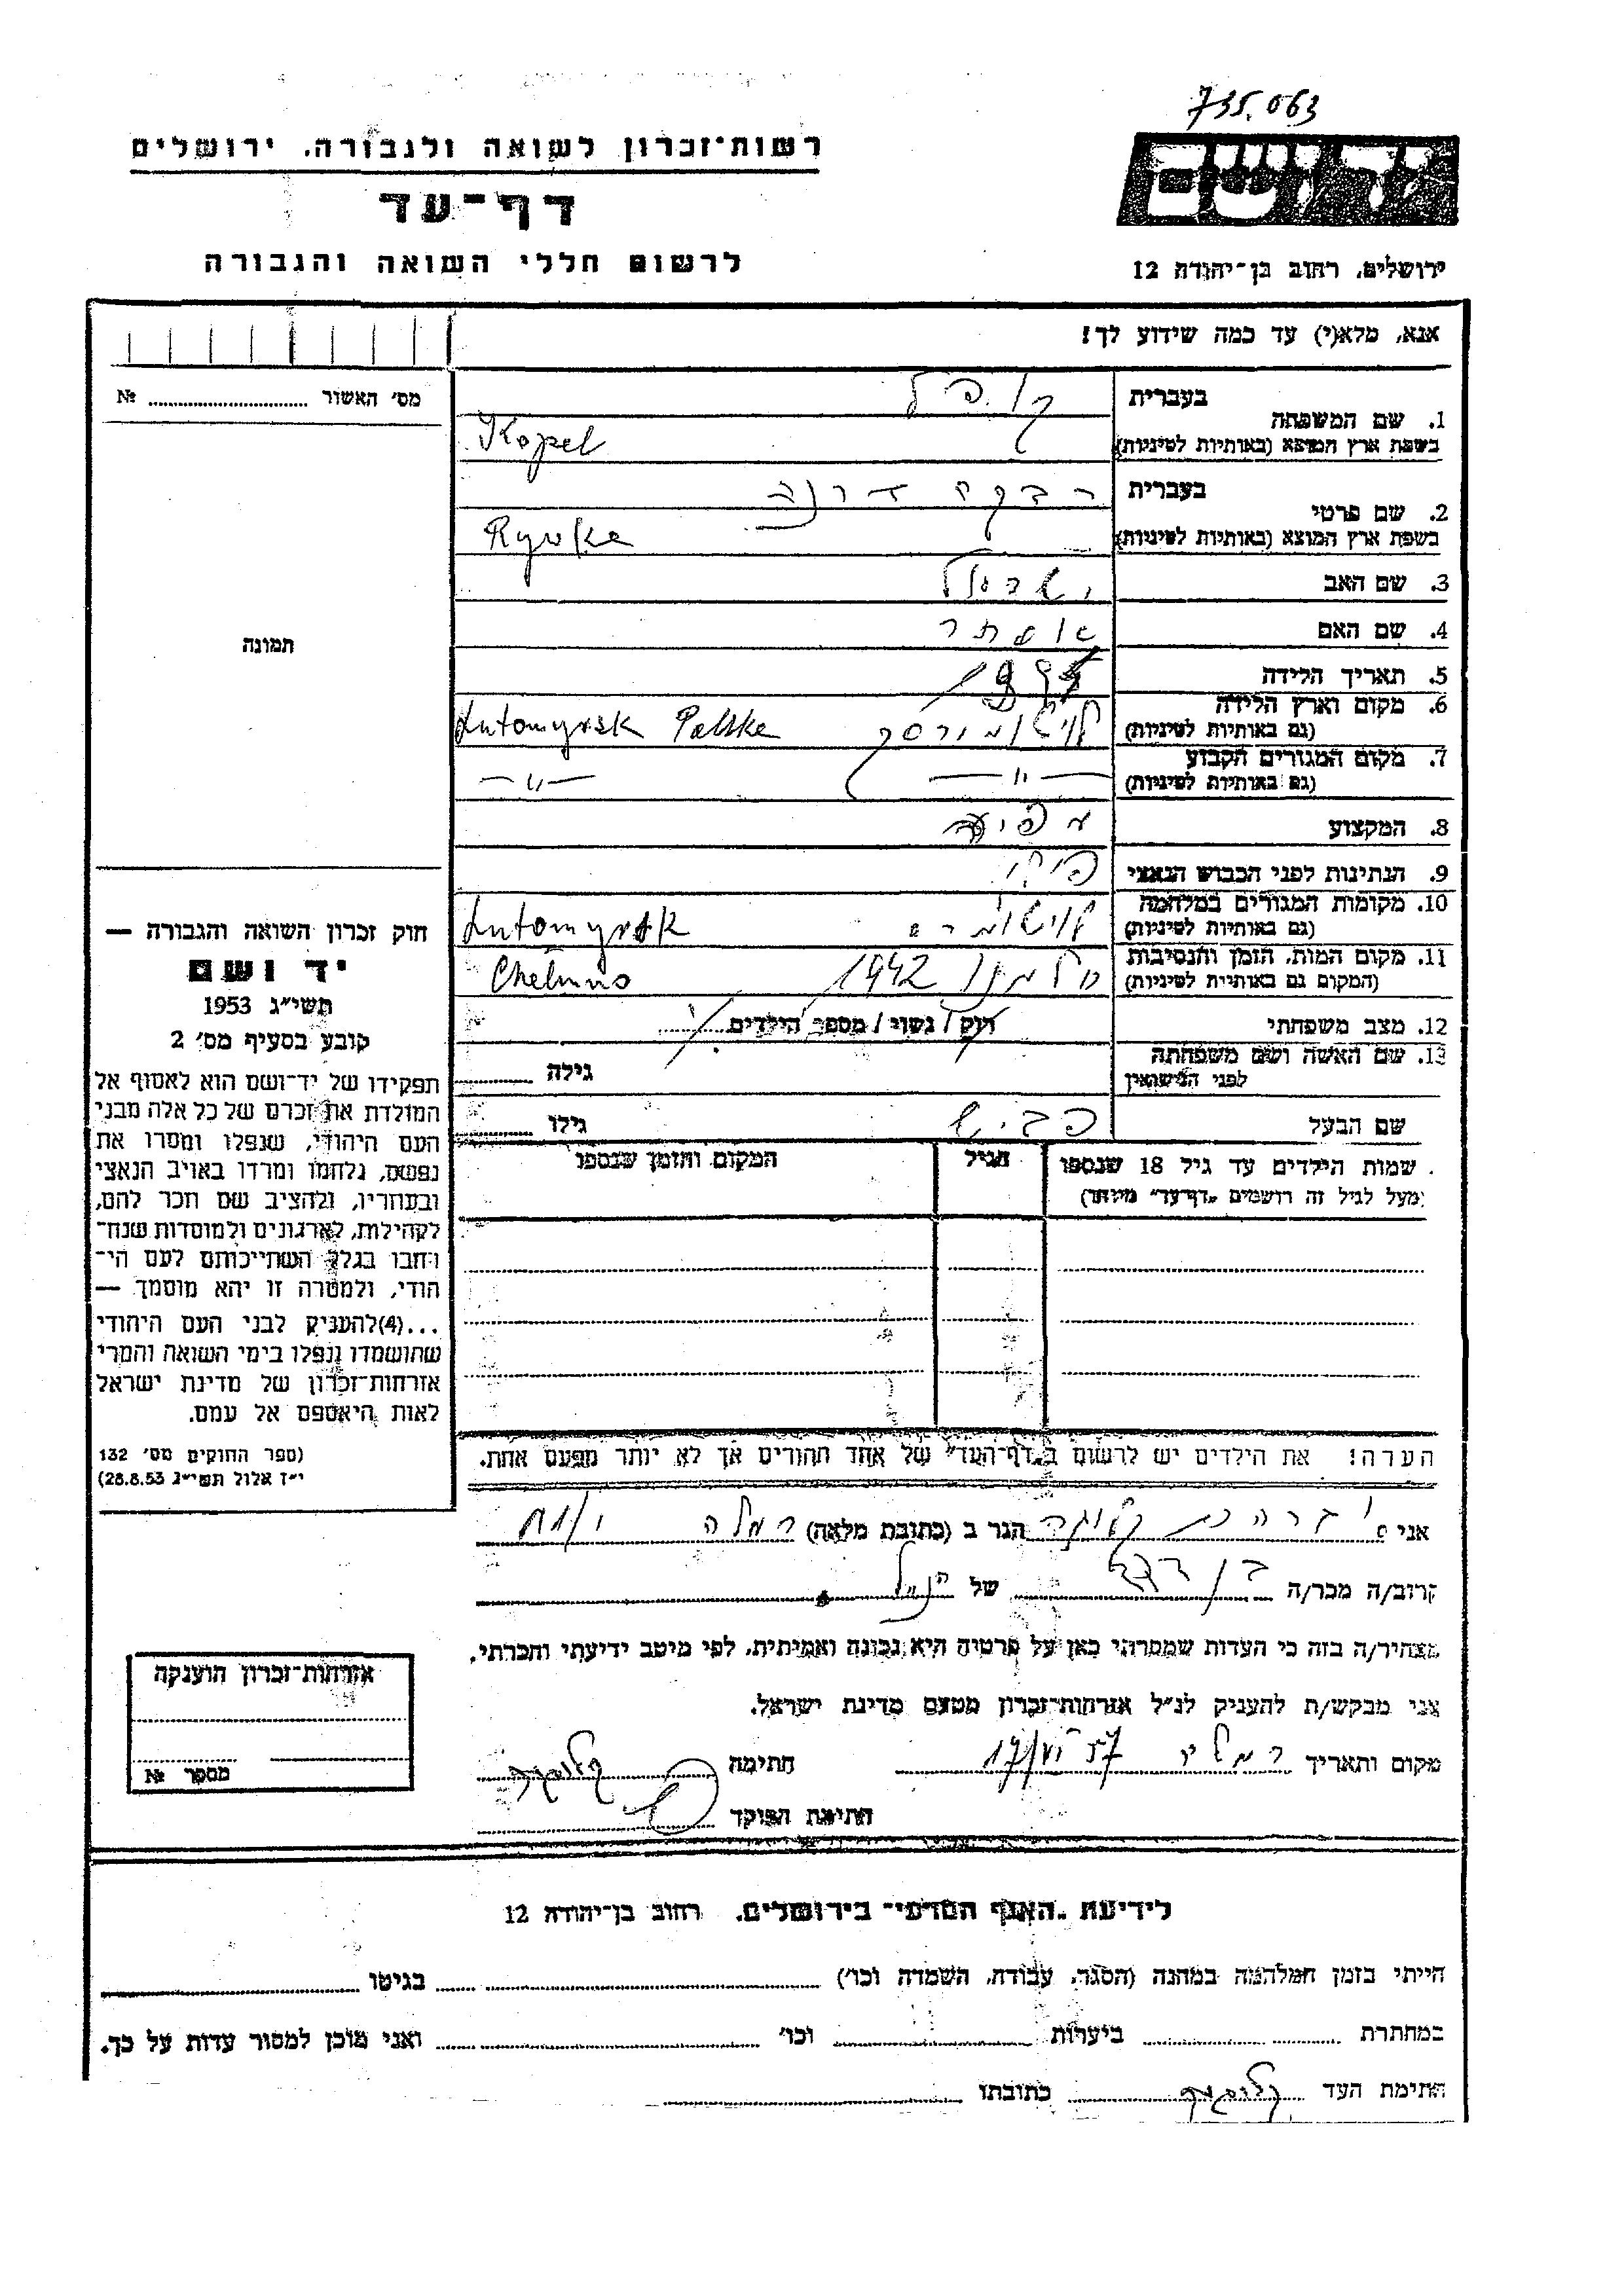 735.063
רשות־זכרון לשואה ולגבורה, ירושלים
יד ושם
דף־עד
לרשום חללי השואה והגבורה
ירושלים, רחוב בן־יהודה 12
אנא, מלא(י) עד כמה שידוע לך!
מס׳ האשור № 
1. שם המשפחה
בעברית קופל
בשפת ארץ המוצא (באותיות לטיניות) Kopel
2. שם פרטי
בעברית רבקה
בשפת ארץ המוצא (באותיות לטיניות) Ryvka
3. שם האב
4. שם האם אסתר
תמונה
5. תאריך הלידה
6. מקום וארץ הלידה
(גם באותיות לטיניות) Lutomyrsk Polska
7. מקום המגורים הקבוע
(גם באותיות לטיניות) —״— —״—
8. המקצוע
9. הנתינות לפני הכבוש הנאצי
10. מקומות המגורים במלחמה
(גם באותיות לטיניות) Lutomyrsk
11. מקום המות, הזמן והנסיבות
(המקום גם באותיות לטיניות) 1942 Chelmno
12. מצב משפחתי רוק / נשוי / מספר הילדים
13. שם האשה ושם משפחתה
לפני הנישואין גילה
שם הבעל גילו
שמות הילדים עד גיל 18 שנספו הגיל המקום והזמן שנספו
(מעל לגיל זה רושמים „דף־עד” מיוחד)
הערה! את הילדים יש לרשום ב„דף־העד” של אחד ההורים אך לא יותר מפעם אחת.
חוק זכרון השואה והגבורה —
יד ושם
תשי״ג 1953
קובע בסעיף מס׳ 2
תפקידו של יד־ושם הוא לאסוף אל
המולדת את זכרם של כל אלה מבני
העם היהודי, שנפלו ומסרו את
נפשם, נלחמו ומרדו באויב הנאצי
ובעוזריו, ולהציב שם וזכר להם,
לקהילות, לארגונים ולמוסדות שנח־
רבו בגלל השתייכותם לעם הי־
הודי, ולמטרה זו יהא מוסמך —
...(4)להעניק לבני העם היהודי
שהושמדו ונפלו בימי השואה והמרי
אזרחות־זכרון של מדינת ישראל
לאות היאספם אל עמם.
(ספר החוקים מס׳ 132
י״ז אלול תשי״ג 28.8.53)
אני הגר ב (כתובת מלאה) רמלה
קרוב/ה מכר/ה של הנ״ל
מצהיר/ה בזה כי העדות שמסרתי כאן על פרטיה היא נכונה ואמיתית, לפי מיטב ידיעתי והכרתי.
אני מבקש/ת להעניק לנ״ל אזרחות־זכרון מטעם מדינת ישראל.
מקום ותאריך רמלה 17/VI 57 חתימה
חתימת הפוקד
אזרחות־זכרון הוענקה
מספר №
לידיעת „האגף המדעי” בירושלים, רחוב בן־יהודה 12
הייתי בזמן המלחמה במחנה (הסגר, עבודה, השמדה וכו׳) בגיטו
במחתרת ביערות וכו׳ ואני מוכן למסור עדות על כך.
חתימת העד כתובתו